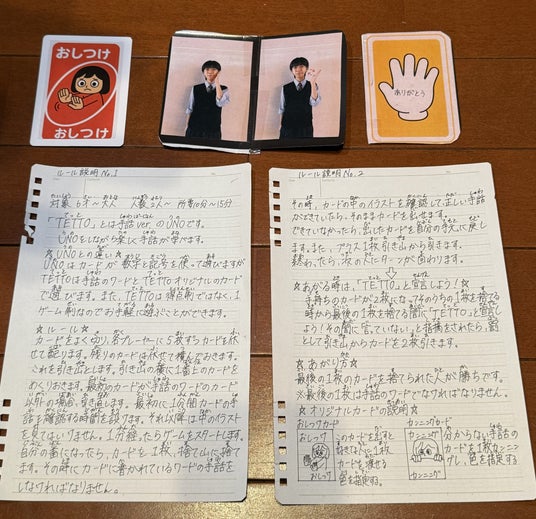 おしつけ
おしつけ
ありがとう
ルール説明No.1
対象 6才〜大人 人数2人〜 所要10分〜15分
「TETTO」とは手話ver.のUNOです。
UNOをしながら楽しく手話が学べます。
☆UNOとの違い☆
UNOはカードが数字と記号を使って遊びますが
TETTOは手話のワードとTETTOオリジナルのカード
で遊びます。また、TETTOは得点制ではなく、1
ゲーム制なのでお手軽に遊ぶことができます。
☆ルール☆
カードをよく切り、各プレーヤーに5枚ずつカードを伏
せて配ります。残りのカードは伏せて積んでおきます。
これを引き出しとします。引き出しの横に1番上のカードを
めくりおきます。最初のカードが手話のワードのカード
以外の場合引き直します。最初に1分間カードの手
話を確認する時間を設けます。それ以降は中のイラスト
を見てはいけません。1分経ったらゲームをスタートします。
自分の番になったら、カードを1枚、捨て山に捨て
ます。その時にカードに書かれているワードの手話を
しなければなりません。
ルール説明No.2
その時、カードの中のイラストを確認して正しい手話
ができていたら、そのままカードを出せます。
できていなかったら、出したカードを自分の手札に戻し
ます。また、プラス1枚引き出しから引きます。
終わったら、次の人にターンが回ります。
☆あがる時は、「TETTO」と宣言しよう!☆
手持ちのカードが2枚になってそのうちの1枚を捨てる
時から最後の1枚を捨てる間に「TETTO」と宣言し
よう!その間に「言っていない」と指摘をされたら、罰
として引き出しからカードを2枚引きます。
☆あがり方☆
最後の1枚のカードを捨てられた人が勝ちです。
※最後の1枚は手話のワードでなければなりません。
☆オリジナルカードの説明☆
おしつけカード
おしつけ
おしつけ
このカードを出すと
好きな人に1枚
カードを渡せる
色を指定する。
カンニングカード
カンニング
カンニング
分からない手話の
カードを1枚カンニン
グし、色を指定する